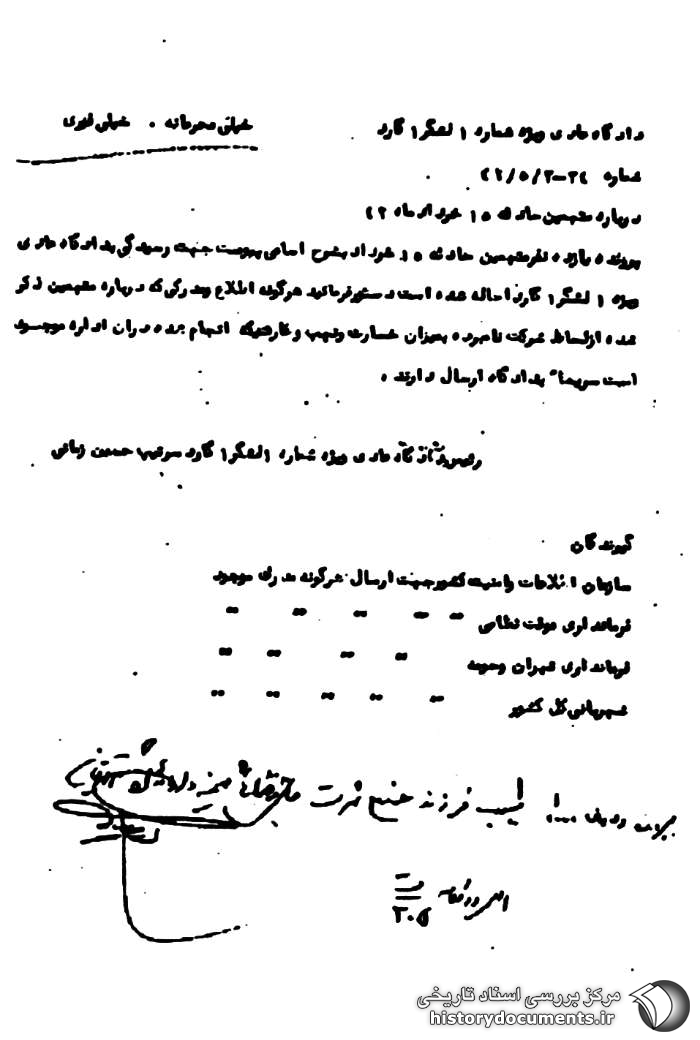 دادگاه عادی ویژه شماره ۱ لشگر ۱ گارد
خیلی محرمانه . خیلی فوری
شماره
درباره متهمین حادثه ۱۵ خرداد ماه ۴۲
پرونده یازده نفر متهمین حادثه ۱۵ خرداد بشرح اسامی پیوست جهت رسیدگی بدادگاه عادی
ویژه ۱ لشگر ۱ گارد احاله شده است دستور فرمائید هرگونه اطلاع ومدرکی که درباره متهمین ذکر
شده ازلحاظ شرکت نامبرده بمیزان خسارت ونهب و غارتیکه انجام شده دران اداره موجود
است سریعا" بدادگاه ارسال دارند .
رئیس دادگاه عادی ویژه شماره ۱ لشگر ۱ گارد سرتیپ حسین زمانی
گیرندگان
سازمان اطلاعات وامنیت کشور جهت ارسال هرگونه مدرک موجود
فرمانداری موقت نظامی " " " " "
فرمانداری تهران وحومه " " " "
شهربانی کل کشور " " " " "
طیب فرزند
مرکز بررسی اسناد تاریخی
historydocuments.ir